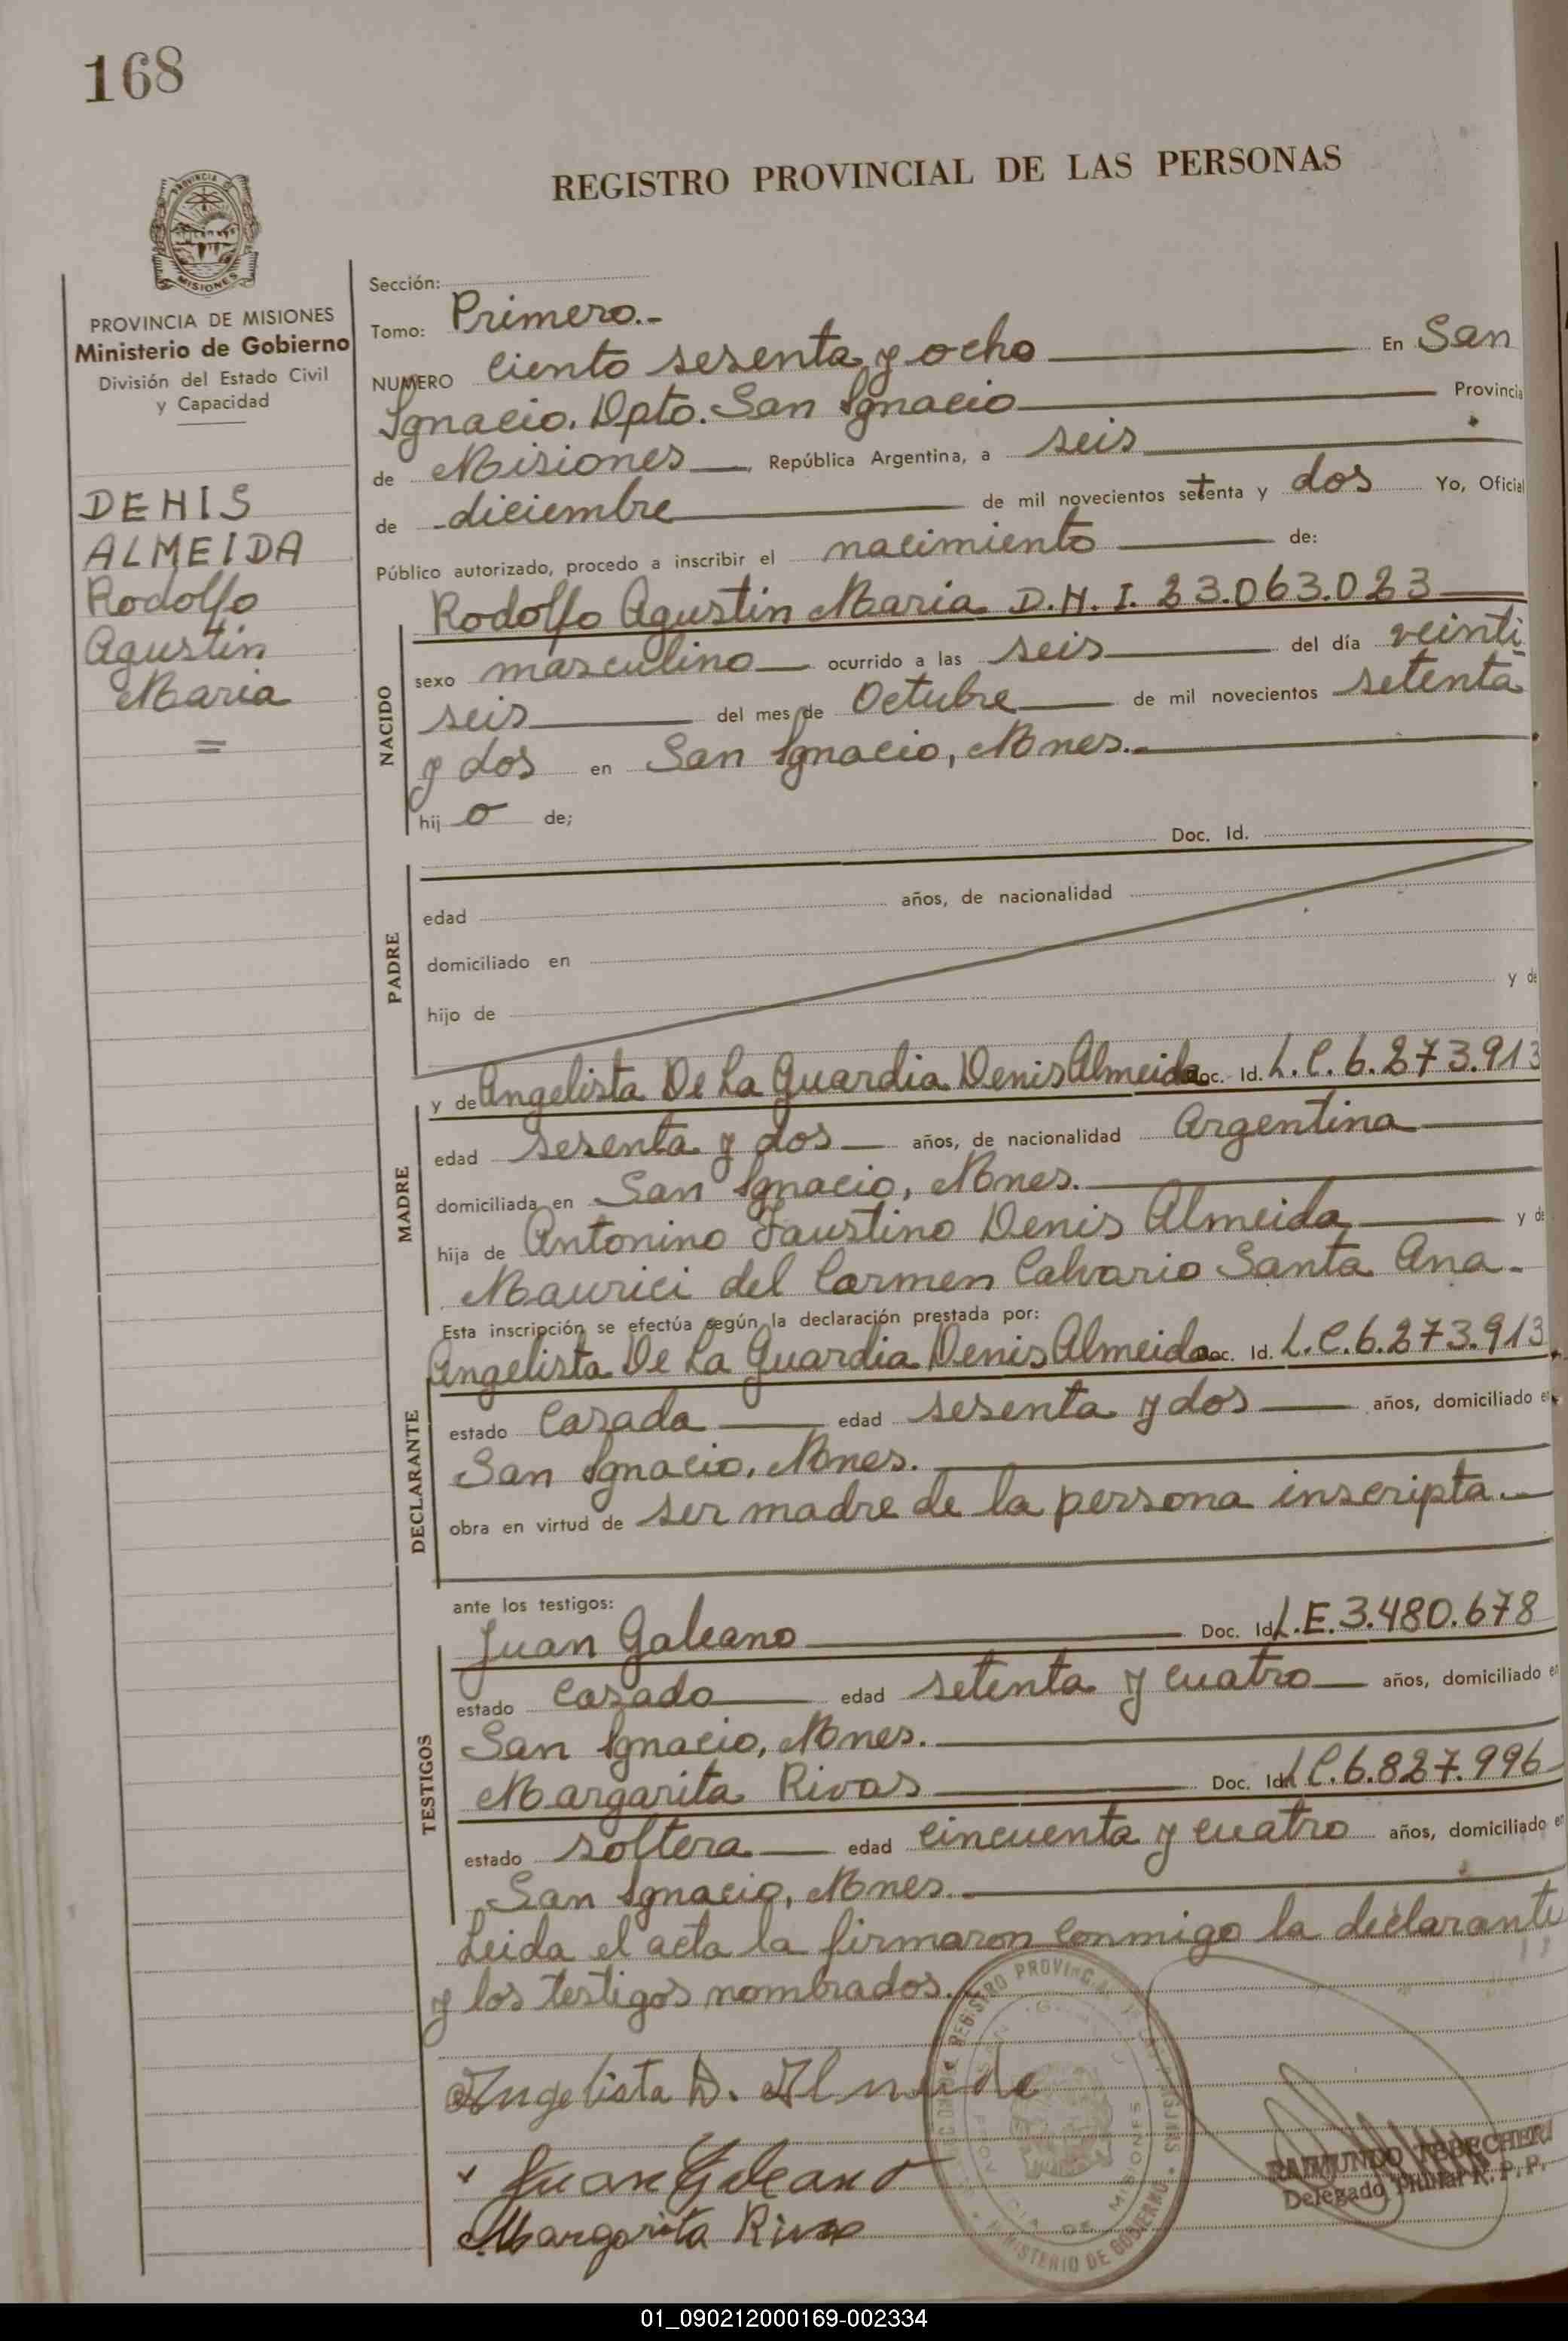 168
REGISTRO PROVINCIAL DE LAS PERSONAS
PROVINCIA DE MISIONES
Ministerio de Gobierno
División del Estado Civil
y Capacidad
DENIS
ALMEIDA
Rodolfo
Agustin
Maria
=
Sección:
Tomo: Primero.-
NUMERO Ciento sesenta y ocho En San
Ignacio. Dpto. San Ignacio Provincia
de Misiones, República Argentina, a seis
de diciembre de mil novecientos setenta y dos Yo, Oficial
Público autorizado, procedo a inscribir el nacimiento de:
NACIDO
Rodolfo Agustin Maria D.N.I. 23.063.023
sexo masculino ocurrido a las seis del día veinti
seis del mes de Octubre de mil novecientos setenta
y dos en San Ignacio, Mnes.-
hij o de;
PADRE
Doc. Id.
edad años, de nacionalidad
domiciliado en
hijo de y de
MADRE
y de Angelista De La Guardia Denis Almeida Doc. Id. L.C. 6.273.913
edad sesenta y dos años, de nacionalidad Argentina
domiciliada en San Ignacio, Mnes.
hija de Antonino Faustino Denis Almeida y de
Maurici del Carmen Calvario Santa Ana.-
Esta inscripción se efectúa según la declaración prestada por:
DECLARANTE
Angelista De La Guardia Denis Almeida Doc. Id. L.C. 6.273.913
estado Casada edad sesenta y dos años, domiciliado en
San Ignacio, Mnes.
obra en virtud de ser madre de la persona inscripta.-
ante los testigos:
TESTIGOS
Juan Galeano Doc. Id. L.E. 3.480.678
estado casado edad setenta y cuatro años, domiciliado en
San Ignacio, Mnes.
Margarita Rivas Doc. Id. L.C. 6.827.996
estado soltera edad cincuenta y cuatro años, domiciliado en
San Ignacio, Mnes.
Leida el acta la firmaron conmigo la declarante
y los testigos nombrados.
Angelista D. Almeida
Juan Galeano
Margarita Rivas
REGISTRO PROVINCIAL DE LAS PERSONAS
MINISTERIO DE GOBIERNO
PROVINCIA DE MISIONES
RAIMUNDO
Delegado Titular R. P. P.
01_090212000169-002334